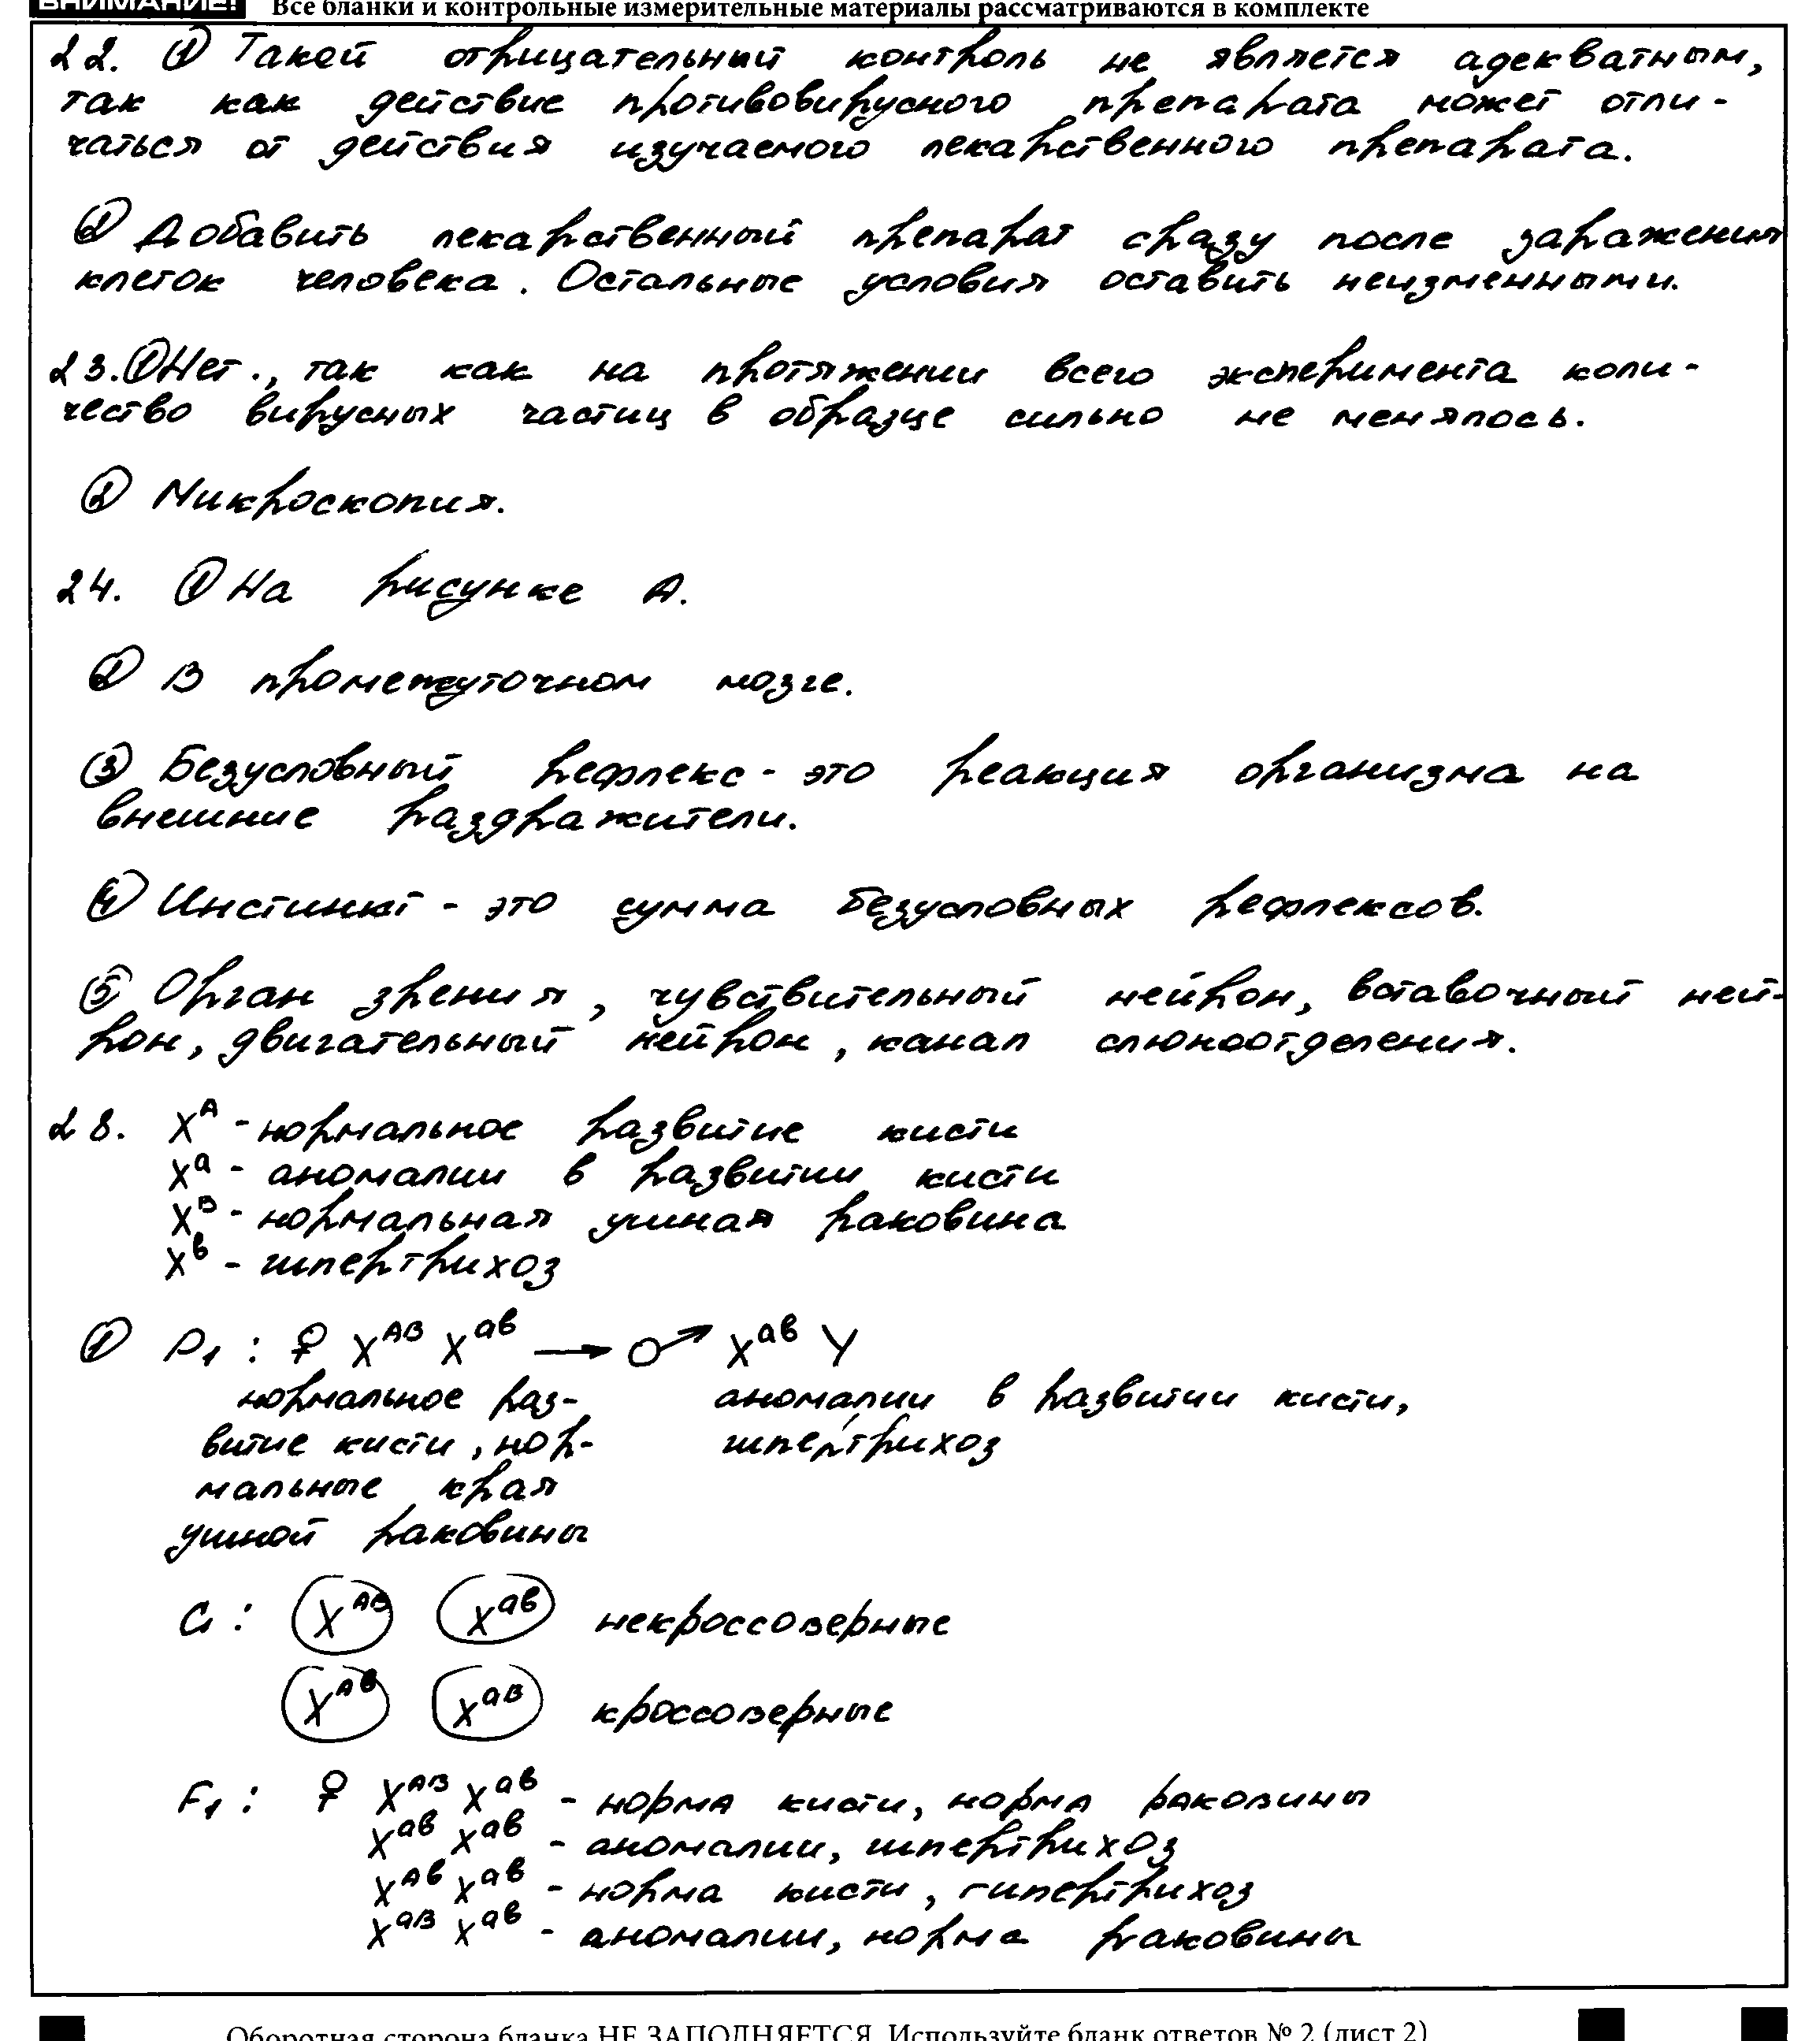 ВНИМАНИЕ! Все бланки и контрольные измерительные материалы рассматриваются в комплекте
22. ① Такой отрицательный контроль не является адекватным,
так как действие противовирусного препарата может отли-
чаться от действия изучаемого лекарственного препарата.
② Добавить лекарственный препарат сразу после заражения
клеток человека. Остальные условия оставить неизменными.
23. ① Нет., так как на протяжении всего эксперимента коли-
чество вирусных частиц в образце сильно не менялось.
② Микроскопия.
24. ① На рисунке А.
② В промежуточном мозге.
③ Безусловный рефлекс - это реакция организма на
внешние раздражители.
④ Инстинкт - это сумма безусловных рефлексов.
⑤ Орган зрения, чувствительный нейрон, вставочный ней-
рон, двигательный нейрон, канал слюноотделения.
28. Xᴬ - нормальное развитие кисти
Xᵃ - аномалии в развитии кисти
Xᴮ - нормальная ушная раковина
Xᵇ - гипертрихоз
① P₁ : ♀ Xᴬᴮ Xᵃᵇ → ♂ Xᵃᵇ Y
нормальное раз- аномалии в развитии кисти,
витие кисти, нор- гипертрихоз
мальные края
ушной раковины
G : Xᴬᴮ Xᵃᵇ некроссоверные
Xᴬᵇ Xᵃᴮ кроссоверные
F₁ : ♀ Xᴬᴮ Xᵃᵇ - норма кисти, норма раковины
Xᵃᵇ Xᵃᵇ - аномалии, гипертрихоз
Xᴬᵇ Xᵃᵇ - норма кисти, гипертрихоз
Xᵃᴮ Xᵃᵇ - аномалии, норма раковины
Оборотная сторона бланка НЕ ЗАПОЛНЯЕТСЯ. Используйте бланк ответов № 2 (лист 2)